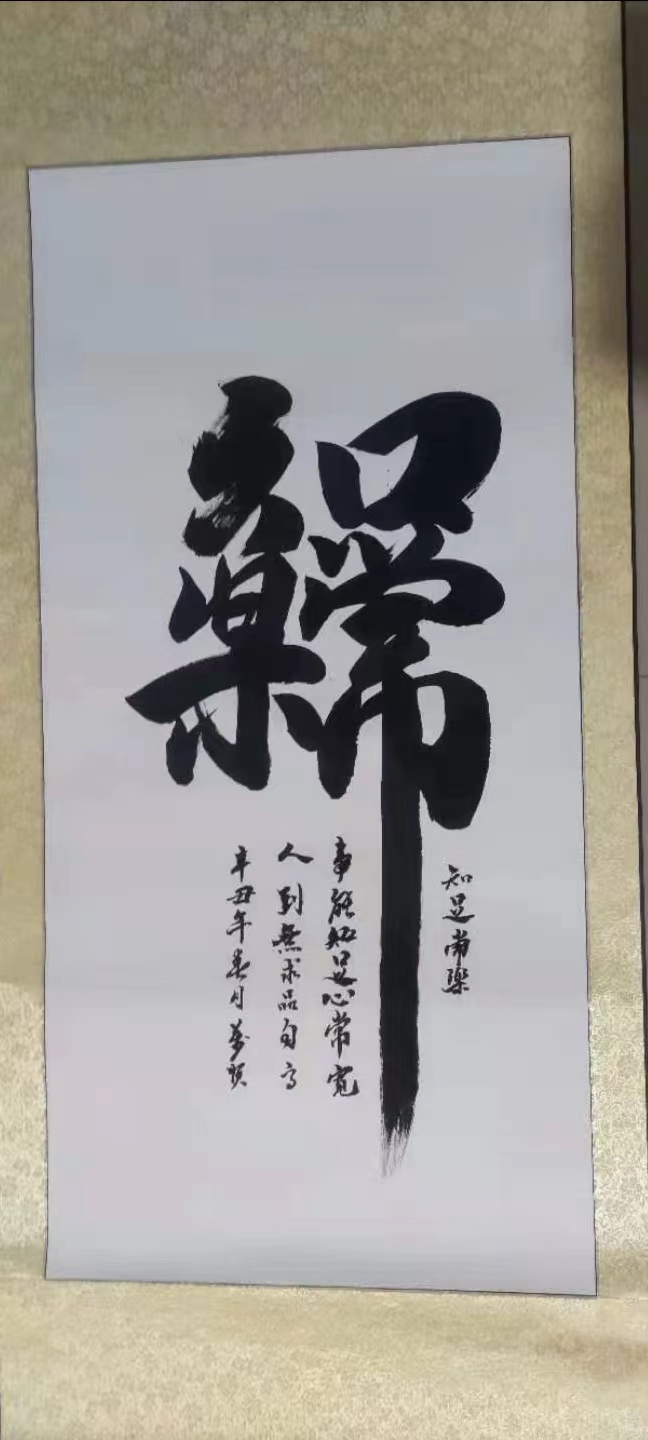 知足常樂
事能知足心常寬
人到無求品自高
辛丑年春月